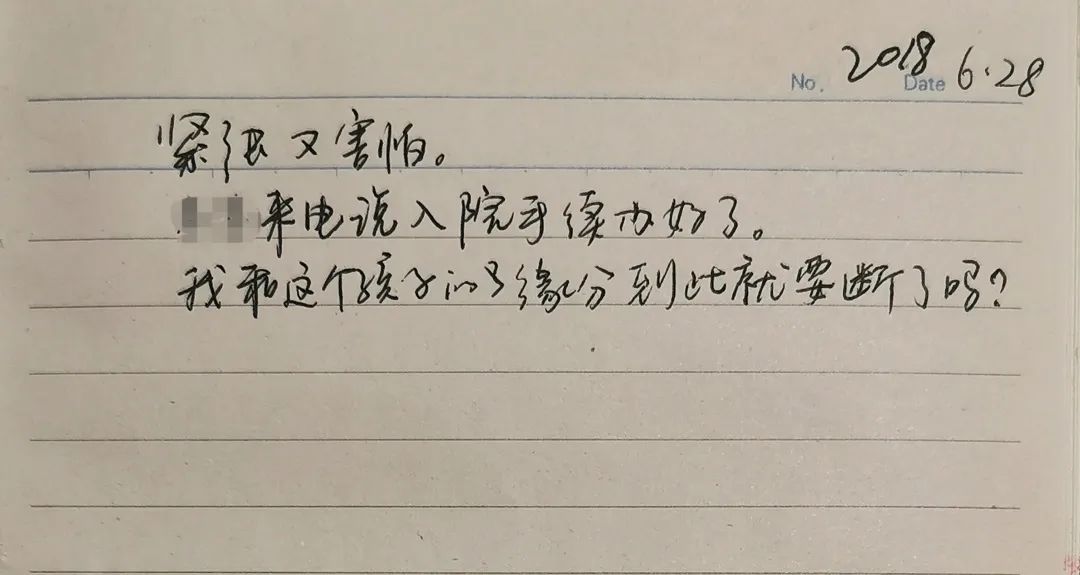 No. 2018 Date 6.28
紧张又害怕。
来电说入院手续办好了。
我和这个孩子的缘分到此就要断了吗？